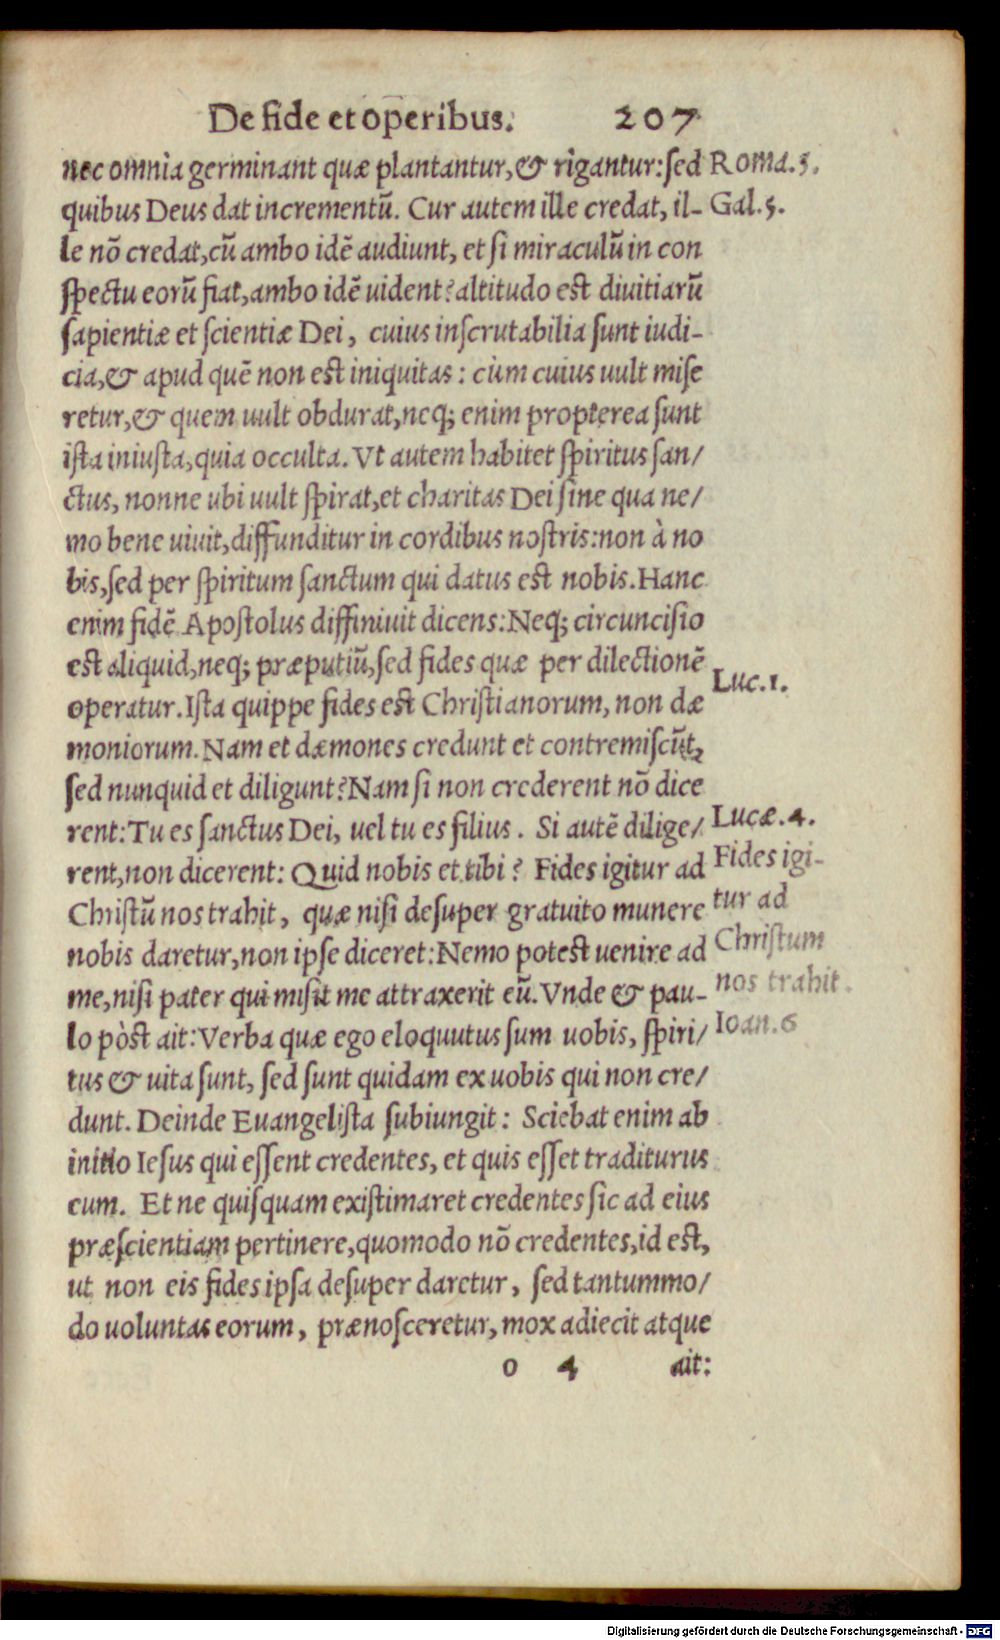 De fide et operibus. 207
nec omnia germinant quæ plantantur,& rigantur:ſed
Roma.5.
quibus Deus dat incrementũ. Cur autem ille credat, il-
Gal.5.
le nõ credat,cũ ambo idẽ audiunt, et ſi miraculũ in con
ſpectu eorũ fiat,ambo idẽ uident?altitudo est diuitiarũ
ſapientiæ et ſcientiæ Dei, cuius inſcrutabilia ſunt iudi-
cia,& apud quẽ non est iniquitas: cùm cuius uult miſe
retur,& quem uult obdurat,neq; enim propterea ſunt
iſta iniuſta,quia occulta. Vt autem habitet ſpiritus ſan/
ctus, nonne ubi uult ſpirat,et charitas Dei ſine qua ne/
mo bene uiuit,diffunditur in cordibus noſtris:non à no
bis,ſed per ſpiritum ſanctum qui datus est nobis.Hanc
enim fidẽ Apoſtolus diffiniuit dicens:Neq; circunciſio
est aliquid,neq; præputiũ,ſed fides quæ per dilectionẽ
Luc.1.
operatur.Iſta quippe fides est Chriſtianorum, non dæ
moniorum.Nam et dæmones credunt et contremiſcũt,
ſed nunquid et diligunt?Nam ſi non crederent nõ dice
rent:Tu es ſanctus Dei, uel tu es filius. Si autẽ dilige/
Lucæ.4.
rent,non dicerent: Quid nobis et tibi? Fides igitur ad
Fides igi-
Chriſtũ nos trahit, quæ niſi deſuper gratuito munere
tur ad
nobis daretur,non ipſe diceret:Nemo potest uenire ad
Chriſtum
me,niſi pater qui miſit me attraxerit eũ.Vnde & pau-
nos trahit.
lo pòst ait:Verba quæ ego eloquutus ſum uobis, ſpiri/
Ioan.6
tus & uita ſunt, ſed ſunt quidam ex uobis qui non cre/
dunt. Deinde Euangeliſta ſubiungit: Sciebat enim ab
initio Ieſus qui eſſent credentes, et quis eſſet traditurus
eum. Et ne quiſquam exiſtimaret credentes ſic ad eius
præſcientiam pertinere,quomodo nõ credentes,id est,
ut non eis fides ipſa deſuper daretur, ſed tantummo/
do uoluntas eorum, prænoſceretur, mox adiecit atque
o 4 ait:
Digitalisierung gefördert durch die Deutsche Forschungsgemeinschaft - DFG